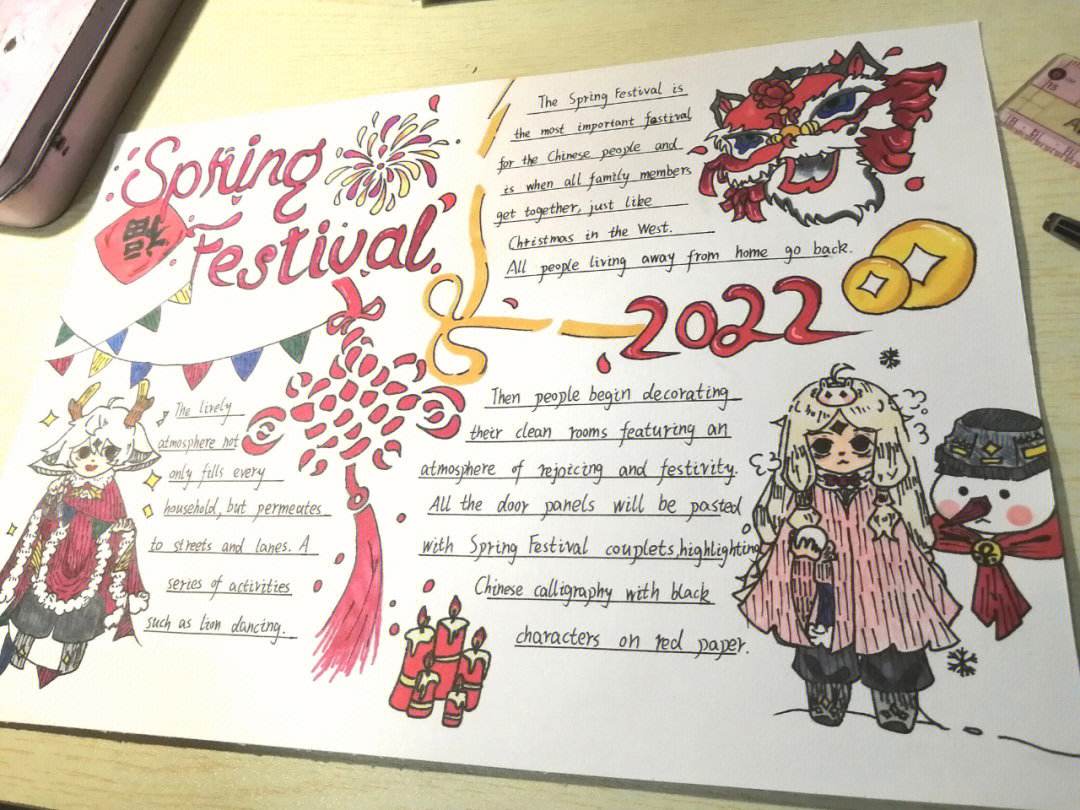 Spring
Festival
福
The Spring Festival is
the most important fastival
for the Chinese people and
is when all family members
get together, just like
Christmas in the West.
All people living away from home go back.
2022
The lively
atmosphere not
only fills every
household, but permeates
to streets and lanes. A
series of activities
such as lion dancing.
Then people begin decorating
their clean rooms featuring an
atmosphere of rejoicing and festivity.
All the door panels will be pasted
with Spring Festival couplets,highlighting
Chinese calligraphy with black
characters on red paper.